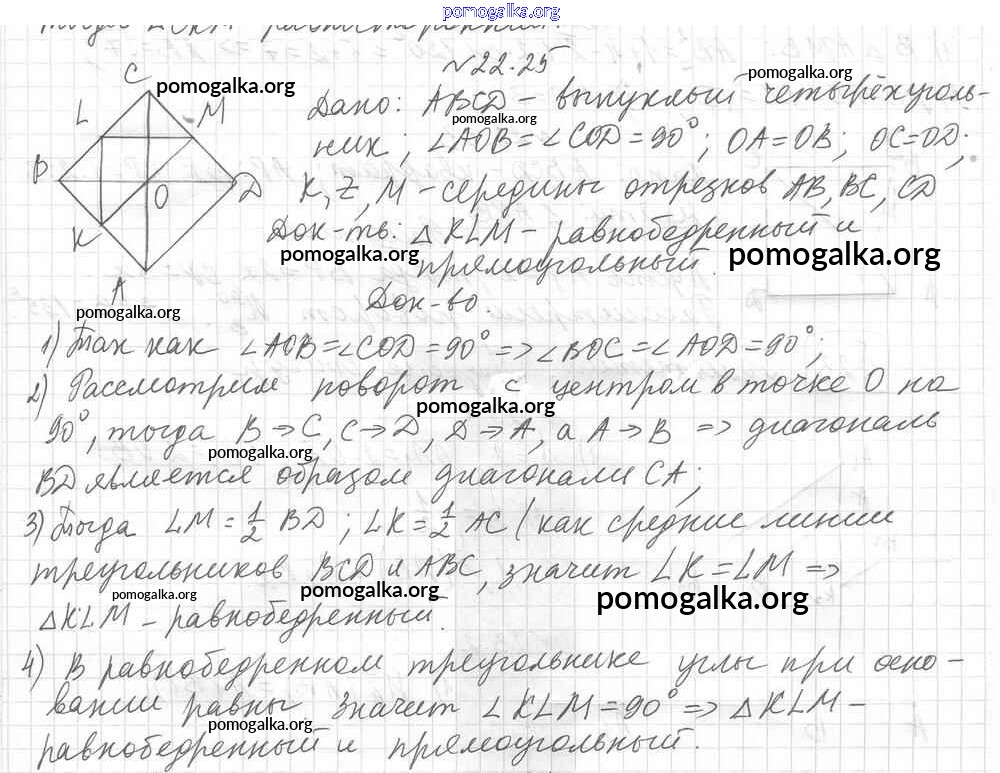 pomogalka.org
№22.25
C
pomogalka.org
L M
B
O
D
K
A
Дано: ABCD – выпуклый четырёхуголь-
pomogalka.org
pomogalka.org
ник, ∠AOB = ∠COD = 90°; OA = OB; OC = OD;
K, Z, M – середины отрезков AB, BC, CD
Док-ть: △KLM – равнобедренный и
прямоугольный.
pomogalka.org
pomogalka.org
Док-во.
pomogalka.org
1) Так как ∠AOB = ∠COD = 90° => ∠BOC = ∠AOD = 90°;
2) Рассмотрим поворот с центром в точке O на
pomogalka.org
90°, тогда B → C, C → D, D → A, а A → B => диагональ
pomogalka.org
BD является образом диагонали CA;
3) Тогда LM = 1/2 BD; LK = 1/2 AC (как средние линии
треугольников BCD и ABC, значит LK = LM =>
pomogalka.org
pomogalka.org
pomogalka.org
△KLM – равнобедренный.
4) В равнобедренном треугольнике углы при осно-
вании равны значит ∠KLM = 90° => △KLM –
pomogalka.org
pomogalka.org
равнобедренный и прямоугольный.